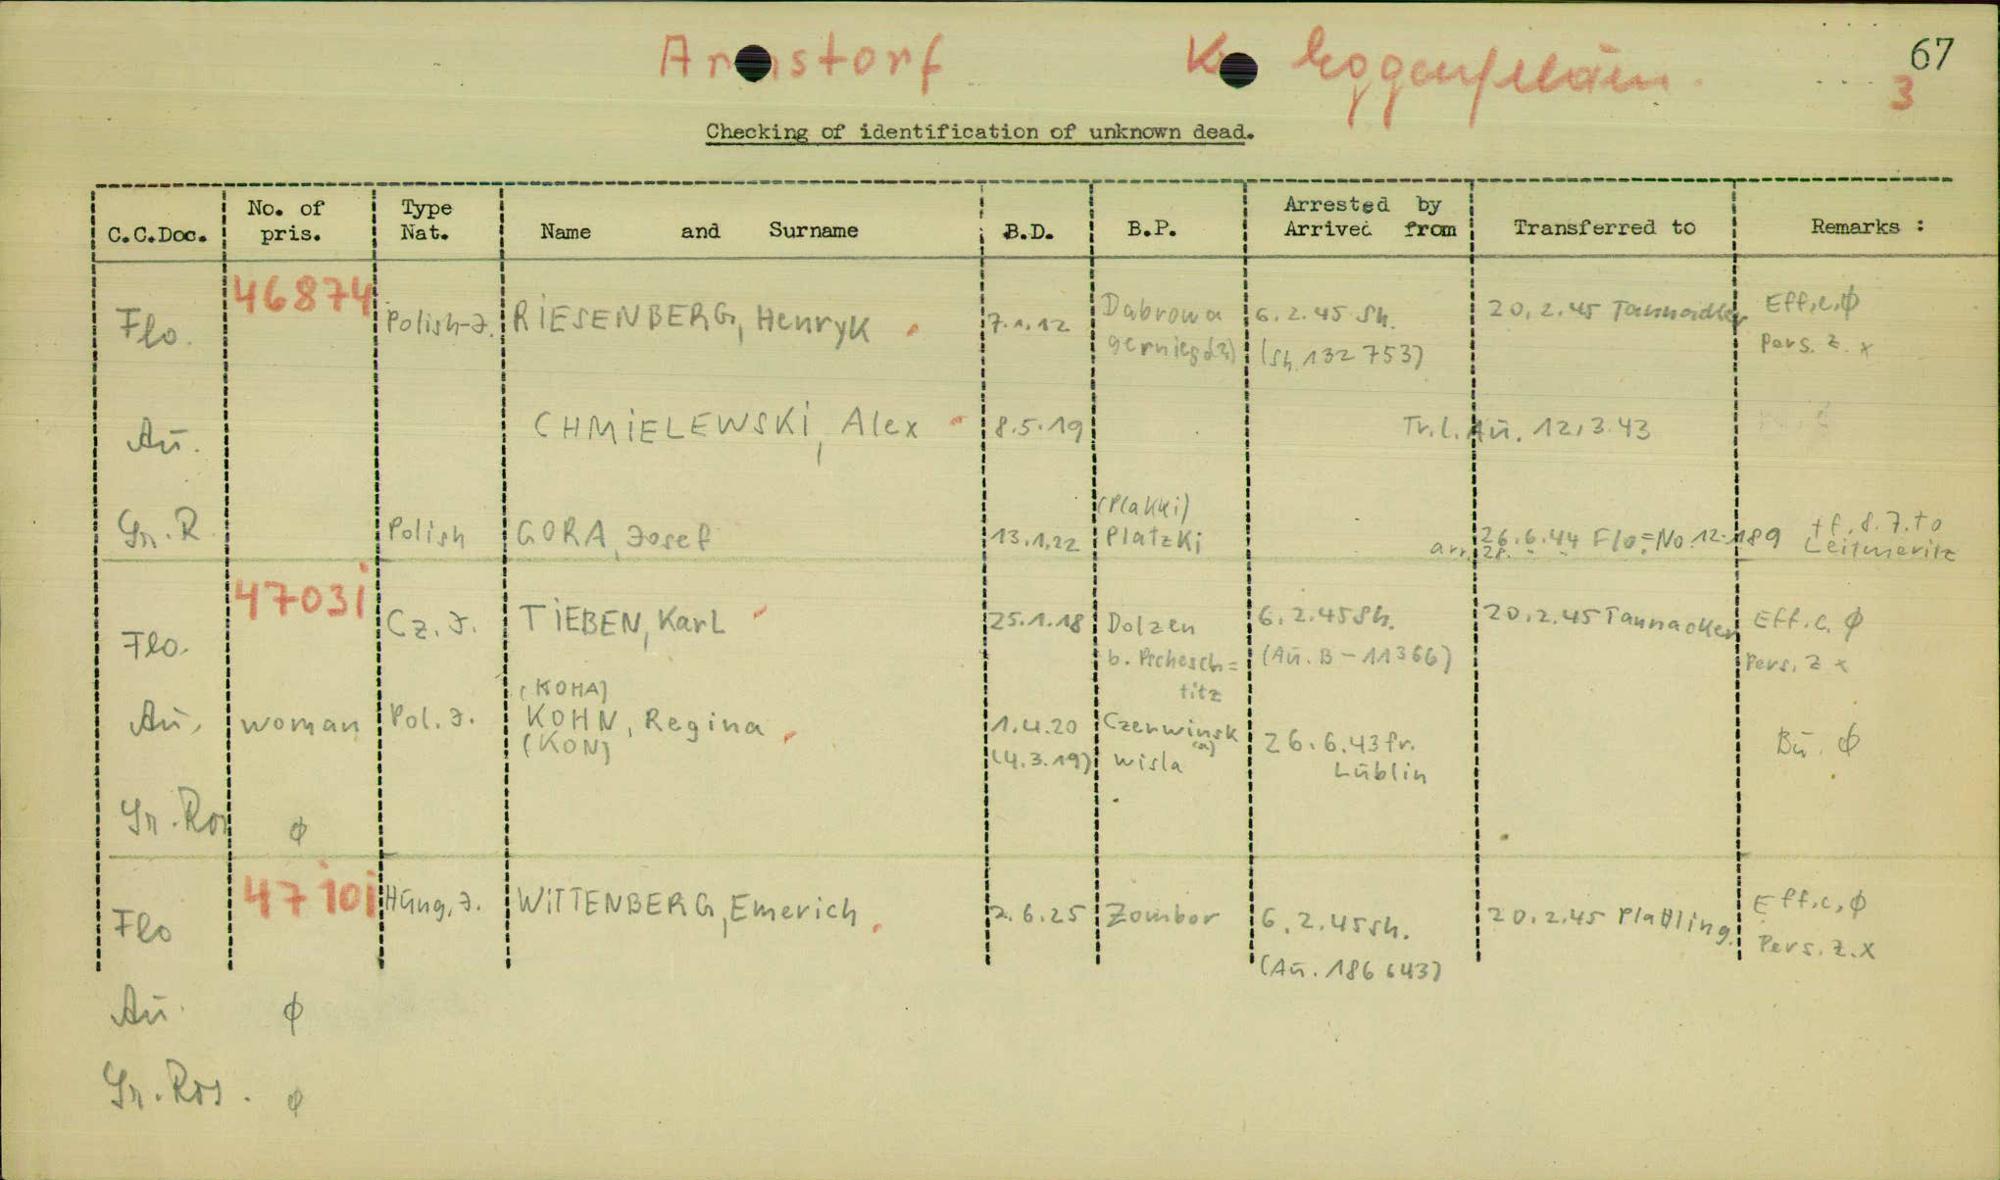 Arnstorf K Eggenfelden 67
3
Checking of identification of unknown dead.
C.C.Doc. No. of pris. Type Nat. Name and Surname B.D. B.P. Arrested by Arrived from Transferred to Remarks :
46874
Flo. Polish-J. RIESENBERG, Henryk 7.1.12 Dabrowa 6.2.45 Sh. 20.2.45 Eff.c. ϕ
(Sh. 132 753) Pers. z. x
Aū. CHMIELEWSKI, Alex 8.5.19 Tr.l. Aū. 12.3.43
(Plakki)
Gr. R Polish GORA, Josef 13.1.22 Platzki 26.6.44 Flo=No. 12.189 tf. 8.7. to
arr. 28. " " Leitmeritz
47031
Flo. Cz. J. TIEBEN, Karl 25.1.18 Dolzen 6.2.45 Sh. 20.2.45 Tannacker Eff.c. ϕ
b. Pschesch= (Aū. B-11366) Pers. z x
titz
(KOHA)
Aū. woman Pol. J. KOHN, Regina 1.4.20 Czerwinsk 26.6.43 fr. Bū. ϕ
(KON) (4.3.19) (a) Wisla Lūblin
Gr. Ros ϕ
47101
Flo Hūng. J. WITTENBERG, Emerich 2.6.25 Zombor 6.2.45 Sh. 20.2.45 Plattling. Eff.c. ϕ
(Aū. 186 643) Pers. z. x
Aū. ϕ
Gr. Ros. ϕ